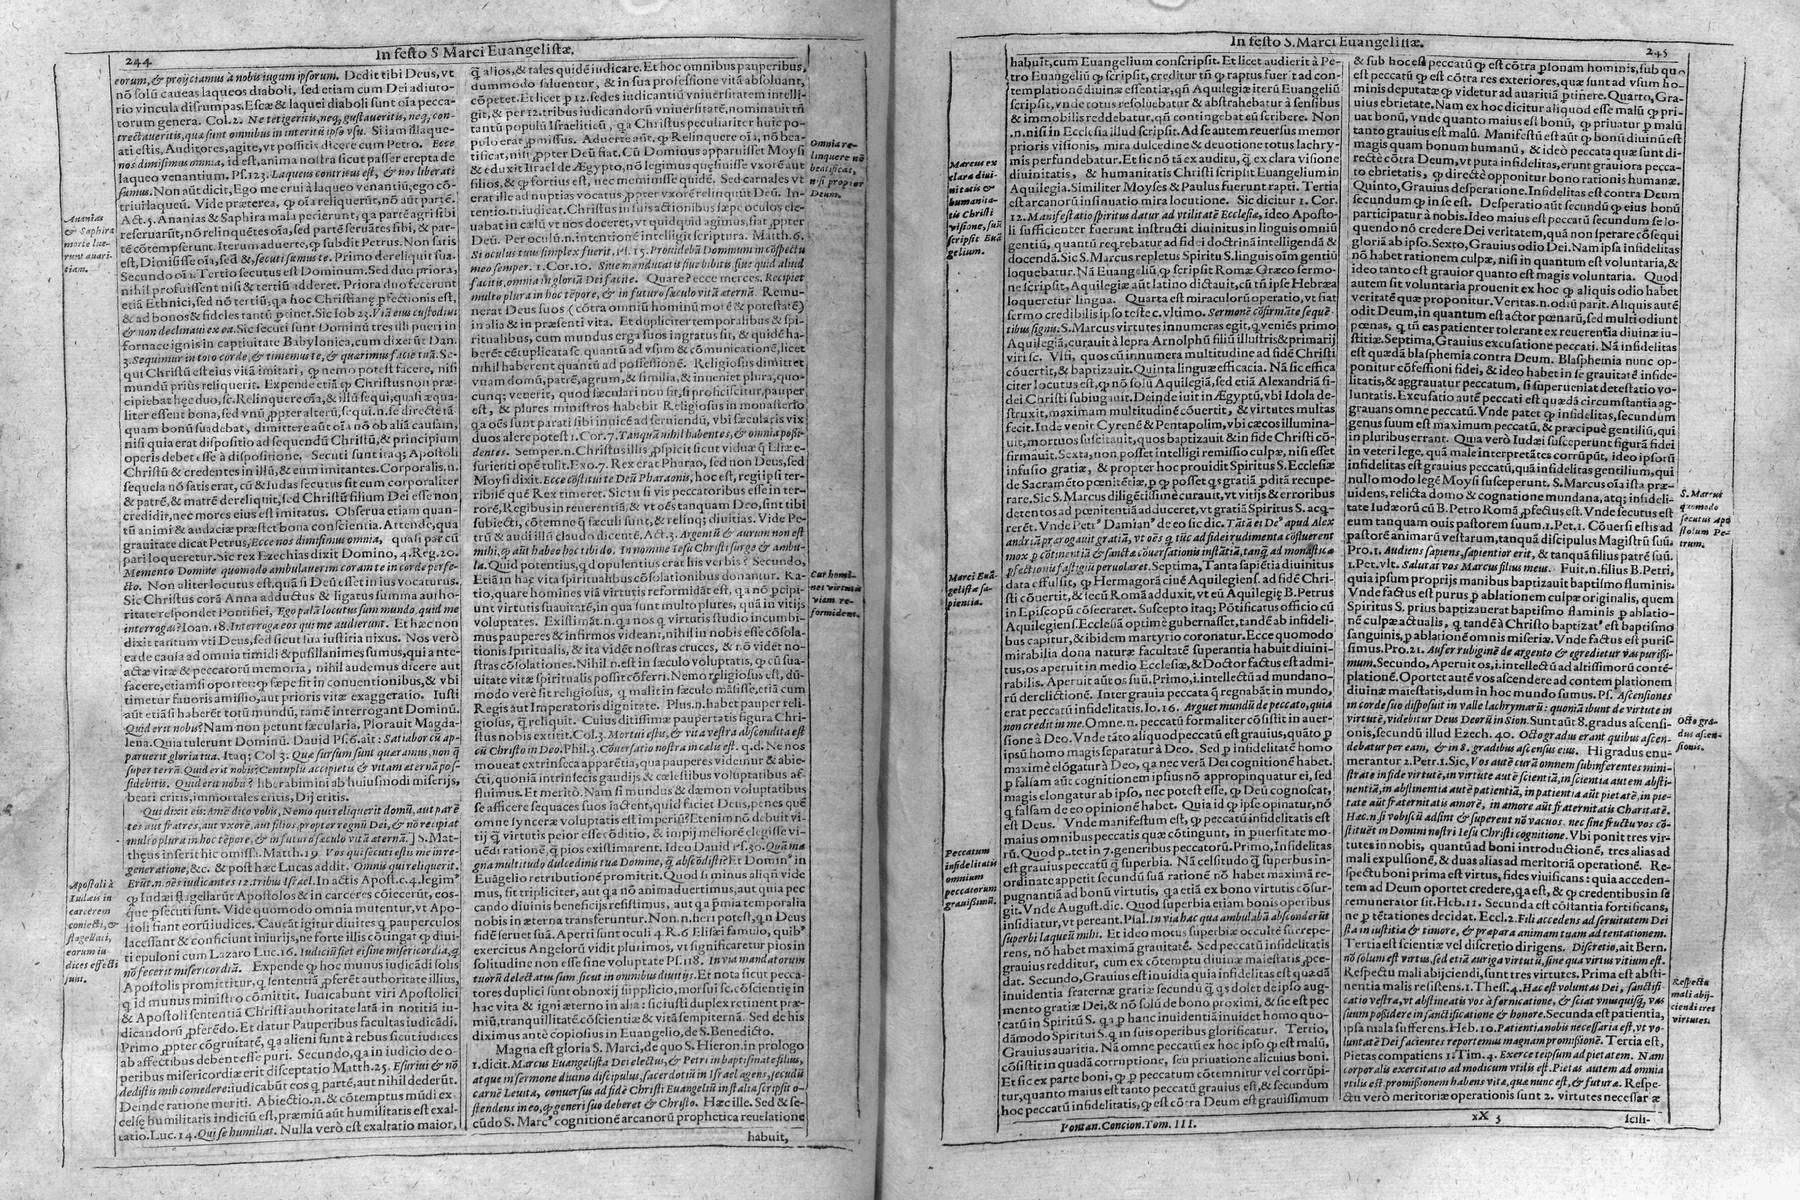 244
In festo S Marci Euangelistæ.
eorum, & proijciamus à nobis iugum ipsorum. Dedit tibi Deus, vt
nō solū caueas laqueos diaboli, sed etiam cum Dei adiuto-
rio vincula disrumpas. Escæ & laquei diaboli sunt oīa pecca-
torum genera. Col. 2. Ne tetigeritis, neq; gustaueritis, neq; con-
trectaueritis, quæ sunt omnibus in interitū ipso vsu. Si iam illaque-
ati estis, Auditores, agite, vt possitis dicere cum Petro. Ecce
nos dimisimus omnia, id est, anima nostra sicut passer erepta de
laqueo venantium. Ps. 123. Laqueus contritus est, & nos liberati
sumus. Non aūt dicit, Ego me erui à laqueo venantiū, ego cō-
Act. 5. Ananias & Saphira male perierunt, qa parté agri sibi
est, Dimisisse oīa, sed &, secuti sumus te. Primo dereliquit sua.
Secundo oīa. Tertio secutus est Dominum. Sed duo priora,
nihil profuissent nisi & tertiū adderet. Priora duo fecerunt
& non declinaui ex ea. Sic secuti sunt Dominū tres illi pueri in
fornace ignis in captiuitate Babylonica, cum dixerūt Dan.
3. Sequimur in toto corde, & timemus te, & quærimus facié tuā. Se-
qui Christū est eius vitā imitari, qp nemo potest facere, nisi
mundū priùs reliquerit. Expende etiā qp Christus non præ-
quam bonū suadebat, dimittere aūt oīa nō ob aliā causam,
nisi quia erat dispositio ad sequendū Christū, & principium
operis debet esse à dispositione. Secuti sunt itaq; Apostoli
Christū & credentes in illū, & eum imitantes. Corporalis .n.
sequela nō satis erat, cū & Iudas secutus sit eum corporaliter
& patrē, & matrē dereliquit, sed Christū filium Dei esse non
credidit, nec mores eius est imitatus. Obserua etiam quan-
tū animi & audaciæ præstet bona conscientia. Attende, qua
grauitate dicat Petrus, Ecce nos dimisimus omnia, quasi par cū
pari loqueretur. Sic rex Ezechias dixit Domino, 4. Reg. 20.
Memento Domine quomodo ambulauerim coram te in corde perfe-
cto. Non aliter locutus est, quā si Deū esset in ius vocaturus.
Sic Christus corā Anna adductus & ligatus summa autho-
ritate respondet Pontifici, Ego palā locutus sum mundo, quid me
interrogas? Ioan. 18. Interroga eos qui me audierunt. Et hæc non
dixit tantum vti Deus, sed sicut sua iustitia nixus. Nos verò
ea de causa ad omnia timidi & pusillanimes sumus, qui ante-
actæ vitæ & peccatorū memoria, nihil audemus dicere aut
facere, etiamsi oportet: qp sæpe fit in conuentionibus, & vbi
timetur fauoris amissio, aut prioris vitæ exaggeratio. Iusti
aūt etiāsi haberēt totū mundū, tamē interrogant Dominū.
Quid erit nobis? Nam non petunt sæcularia. Plorauit Magda-
lena. Quia tulerunt Dominū. Dauid Ps. 6. ait: Satiabor cū ap-
paruerit gloria tua. Itaq; Col 3. Quæ sursum sunt quæramus, non q̄
super terrā. Quid erit nobis? Centuplū accipietis & vitam æternā pos-
sidebitis. Quid erit nobis? liberabimini ab huiusmodi miserijs,
beati eritis, immortales eritis, Dij eritis.
Qui dixit eis: Amē dico vobis, Nemo qui reliquerit domū, aut parē
tes aut fratres, aut vxorē, aut filios, propter regnū Dei, & nō recipiat
multo plura in hoc tēpore, & in futuro sæculo vitā æternā.] S. Mat-
thęus inserit hic omissa. Matth. 19. Vos qui secuti estis me in re-
generatione, &c. & post hæc Lucas addit. Omnis qui reliquerit.
Erūt .n. oēs iudicantes 12. tribus Israel. In actis Apost. c. 4. legimꝰ
qp Iudæi flagellarūt Apostolos & in carceres cōiecerūt, eos-
que psecuti sunt. Vide quomodo omnia mutentur, vt Apo-
stoli fiant eorū iudices. Caueāt igitur diuites q̄ pauperculos
lacessant & conficiunt iniurijs, ne forte illis cōtingat qp diui-
ti epuloni cum Lazaro Luc. 16. Iudiciū fiet ei sine misericordia, q̄
nō fecerit misericordiā. Expende qp hoc munus iudicādi solis
Apostolis promittitur, q̄ sententiā pferēt authoritate illius,
q̄ id munus ministro cōmittit. Iudicabunt viri Apostolici
& Apostoli sententiā Christi authoritate latā in notitiā iu-
dicandorū pferēdo. Et datur Pauperibus facultas iudicādi.
Primo ppter cōgruitatē, qa alieni sunt à rebus sicut iudices
ab affectibus debent esse puri. Secundo, qa in iudicio de o-
peribus misericordiæ erit disceptatio Matth. 25. Esuriui & nō
dedistis mihi comedere: iudicabūt eos q̄ partē, aut nihil dederūt.
Deinde ratione meriti. Abiectio .n. & cōtemptus mūdi ex-
celsę humilitatis indiciū est, præmiū aūt humilitatis est exal-
tatio. Luc. 14. Qui se humiliat. Nulla verò est exaltatio maior,
Ananias
& Saphira
morte lue-
runt auari-
tiam.
Apostoli à
Iudæis in
carcerem
coniecti, &
flagellati,
eorum iu-
dices effecti
sunt.
q̄ alios, & tales quidē iudicare. Et hoc omnibus pauperibus,
dummodo saluentur, & in sua professione vitā absoluant,
cōpetet. Et licet p 12. sedes iudicantiū vniuersitatem intelli-
git, & per 12. tribus iudicandorū vniuersitatē, nominauit tn̄
tantū populū Israeliticū, qa Christus peculiariter huic po-
pulo erat pmissus. Aduerte aūt. qp Relinquere oīa, nō bea-
tificat, nisi ppter Deū fiat. Cū Dominus apparuisset Moysi
& eduxit Israel de Ægypto, nō legimus quęsiuisse vxorē aut
filios, & qp fortius est, nec meminisse quidē. Sed carnales vt
erat ille ad nuptias vocatus ppter vxorē relinquūt Deū. In-
tentio .n. iudicat. Christus in suis actionibus sæpe oculos ele-
uabat in cælū vt nos doceret, vt quidquid agimus, fiat ppter
Deū. Per oculū .n. intentionē intelligit scriptura. Matth. 6.
Si oculus tuus simplex fuerit, Ps. 15. Prouidebā Dominum in cōspectu
meo semper. 1. Cor. 10. Siue manducatis siue bibitis siue quid aliud
facitis, omnia in gloriā Dei facite. Quare? ecce merces. Recipiet
multo plura in hoc tēpore, & in futuro sæculo vitā æternā. Remu-
nerat Deus suos (cōtra omniū hominū morē & potestatē)
in alia & in præsenti vita. Et dupliciter temporalibus & spi-
ritualibus, cum mundus erga suos ingratus sit, & quidē ha-
berēt cētuplicata sc. quantū ad vsum & cōmunicationē, licet
nihil haberent quantū ad possessionē. Religiosus dimittet
vnam domū, patrē, agrum, & similia, & inueniet plura, quo-
cunq; venerit, quod sæculari non fit, si proficiscitur, pauper
est, & plures ministros habebit Religiosus in monasterio
qa oēs sunt parati sibi inuicē ad seruiendū, vbi sæcularis vix
duos alere potest 1. Cor. 7. Tanquā nihil habentes, & omnia possi-
dentes. Semper .n. Christus illis pspicit sicut viduæ q̄ Eliæ e-
surienti opē tulit. Exo. 7. Rex erat Pharao, sed non Deus, sed
Moysi dixit. Ecce cōstitui te Deū Pharaonis, hoc est, regi ipsi ter-
ribilē quē Rex timeret. Sic tu si vis peccatoribus esse in ter-
rorē, Regibus in reuerentiā, & vt oēs tanquam Deo, sint tibi
subiecti, cōtemne q̄ sæculi sunt, & relinq; diuitias. Vide Pe-
trū & audi illū claudo dicentē. Act. 3. Argentū & aurum non est
mihi, qp aūt habeo hoc tibi do. In nomine Iesu Christi surge & ambu-
la. Quid potentius, qd opulentius erat his verbis? Secundo,
Etiā in hac vita spiritualibus cōsolationibus donantur. Ra-
tio, quare homines viā virtutis reformidāt est, qa nō pcipi-
unt virtutis suauitatē, in qua sunt multo plures, quā in vitijs
voluptates. Existimāt .n. qa nos q̄ virtutis studio incumbi-
mus pauperes & infirmos videant, nihil in nobis esse cōsola-
tionis spiritualis, & ita vidēt nostras cruces, & nō vidēt no-
stras cōsolationes. Nihil .n. est in sæculo voluptatis, qp cū sua-
uitate vitæ spiritualis possit cōferri. Nemo religiosus est, dū-
modo verè sit religiosus, q̄ malit in sæculo māsisse, etiā cum
Regis aut Imperatoris dignitate. Plus .n. habet pauper reli-
giosus, q̄ reliquit. Cuius ditissimæ paupertatis figura Chri-
stus nobis extitit. Col. 3. Mortui estis, & vita vestra abscondita est
cū Christo in Deo. Phil. 3. Cōuersatio nostra in cælis est. q.d. Ne nos
moueat extrinseca apparētia, qua pauperes videmur & abie-
cti, quoniā intrinsecis gaudijs & cælestibus voluptatibus af-
fluimus. Et meritò. Nam si mundus & dæmon voluptatibus
se afficere sequaces suos iactent, quid faciet Deus, penes quē
omne synceræ voluptatis est imperiū? Etenim nō debuit vi-
tij q̄ virtutis peior esse cōditio, & impij meliorē elegisse vi-
uēdi rationē, q̄ pios existimarent. Ideo Dauid Ps. 30. Quā ma
gna multitudo dulcedinis tuæ Domine, q̄ abscōdisti? Et Dominꝰ in
Euāgelio retributionē promittit. Quod si minus aliqñ vide
mus, fit tripliciter, aut qa nō animaduertimus, aut quia pec
cando diuinis beneficijs resistimus, aut qa pmia temporalia
nobis in æterna transferuntur. Non .n. fieri potest, qn Deus
fidē seruet suā. Aperti sunt oculi 4 R. 6 Elisæi famulo, quibꝰ
exercitus Angelorū vidit plurimos, vt significaretur pios in
solitudine non esse sine voluptate Ps. 118. In via mandatorum
tuorū delectatus sum, sicut in omnibus diuitijs. Et nota sicut pecca-
tores duplici sunt obnoxij supplicio, morsui sc. cōscientię in
hac vita & igni æterno in alia: sic iusti duplex retinent præ-
miū, tranquillitatē cōscientiæ & vitā sempiternā. Sed de his
diximus antè copiosius in Euangelio, de S. Benedicto.
Magna est gloria S. Marci, de quo S. Hieron. in prologo
1. dicit. Marcus Euangelista Dei electus, & Petri in baptismate filius,
atque in sermone diuino discipulus, sacerdotiū in Israel agens, secundū
carnē Leuita, conuersus ad fidē Christi Euangeliū in Italia scripsit o-
stendens in eo, qp generi suo deberet & Christo. Hæc ille. Sed & se-
cūdo S. Marcꝰ cognitionē arcanorū prophetica reuelatione
habuit,
Omnia re-
linquere nō
beatificat,
nisi propter
Deum.
Cur homi-
nes virtutis
viam re-
formident.
In festo S. Marci Euangelistæ.
245
habuit, cum Euangelium conscripsit. Et licet audierit à Pe-
tro Euangeliū qp scripsit, creditur tn̄ qp raptus fuerit ad con-
templationē diuinæ essentiæ, qn̄ Aquilegiæ iterū Euangeliū
scripsit, vnde totus resoluebatur & abstrahebatur à sensibus
& immobilis reddebatur, qn̄ contingebat eū scribere. Non
.n. nisi in Ecclesia illud scripsit. Ad se autem reuersus memor
prioris visionis, mira dulcedine & deuotione totus lachry-
mis perfundebatur. Et sic nō tā ex auditu, q̄ ex clara visione
diuinitatis, & humanitatis Christi scripsit Euangelium in
Aquilegia. Similiter Moyses & Paulus fuerunt rapti. Tertia
est arcanorū insinuatio mira locutione. Sic dicitur 1. Cor.
12. Manifestatio spiritus datur ad vtilitatē Ecclesiæ, ideo Aposto-
li sufficienter fuerunt instructi diuinitus in linguis omniū
gentiū, quantū reqrebatur ad fidei doctrinā intelligendā &
docendā. Sic S. Marcus repletus Spiritu S. linguis oīm gentiū
loquebatur. Nā Euangeliū, qp scripsit Romæ Græco sermo-
ne scripsit, Aquilegiæ aūt latino dictauit, cū tn̄ ipse Hebræa
loqueretur lingua. Quarta est miraculorū operatio, vt fiat
sermo credibilis ipso teste c. vltimo. Sermonē cōfirmāte sequē-
tibus signis. S. Marcus virtutes innumeras egit, q̄ veniēs primo
Aquilegiā, curauit à lepra Arnolphū filiū illustris & primarij
viri sc. Vlsi, quos cū innumera multitudine ad fidē Christi
cōuertit, & baptizauit. Quinta linguæ efficacia. Nā sic effica
citer locutus est, qp nō solū Aquilegiā, sed etiā Alexandriā fi-
dei Christi subiugauit. Deinde iuit in Ægyptū, vbi Idola de-
struxit, maximam multitudinē cōuertit, & virtutes multas
fecit. Inde venit Cyrenē & Pentapolim, vbi cæcos illumina-
uit, mortuos suscitauit, quos baptizauit & in fide Christi cō-
firmauit. Sexta, non posset intelligi remissio culpæ, nisi esset
infusio gratiæ, & propter hoc prouidit Spiritus S. Ecclesiæ
de Sacramēto pœnitētiæ, p qp posset qs gratiā pditā recupe-
rare. Sic S. Marcus diligētissimè curauit, vt vitijs & erroribus
detentos ad pœnitentiā adduceret, vt gratiā Spiritus S. acq-
rerēt. Vnde Petrꝰ Damianꝰ de eo sic dic. Tātā ei Deꝰ apud Alex
andriā prærogauit gratiā, vt oēs q̄ tūc ad fidei rudimenta cōfluerent
mox p cōtinentiā & sanctæ cōuersationis instātiā, tanq̄ ad monasticæ
pfectionis fastigiū peruolaret. Septima, Tanta sapiētia diuinitus
data effulsit, qp Hermagorā ciuē Aquilegiens. ad fidē Chri-
sti cōuertit, & secū Romā adduxit, vt eū Aquilegię B. Petrus
in Episcopū cōsecraret. Suscepto itaq; Pōtificatus officio cū
Aquilegiens. Ecclesiā optimè gubernasset, tandē ab infideli-
bus capitur, & ibidem martyrio coronatur. Ecce quomodo
mirabilia dona naturæ facultatē superantia habuit diuini-
tus, os aperuit in medio Ecclesiæ, & Doctor factus est admi-
rabilis. Aperuit aūt os suū. Primo, i. intellectū ad mundano-
rū derelictionē. Inter grauia peccata q̄ regnabāt in mundo,
erat peccatū infidelitatis. Io. 16. Arguet mundū de peccato, quia
non credit in me. Omne .n. peccatū formaliter cōsistit in auer-
sione à Deo. Vnde tāto aliquod peccatū est grauius, quāto p
ipsū homo magis separatur à Deo. Sed p infidelitatē homo
maximè elōgatur à Deo, qa nec verā Dei cognitionē habet.
p falsam aūt cognitionem ipsius nō appropinquatur ei, sed
magis elongatur ab ipso, nec potest esse, qp Deū cognoscat,
q̄ falsam de eo opinionē habet. Quia id qp ipse opinatur, nō
est Deus. Vnde manifestum est, qp peccatū infidelitatis est
maius omnibus peccatis quæ cōtingunt, in puersitate mo-
rū. Quod ptet in 7. generibus peccatorū. Primo, Infidelitas
est grauius peccatū q̄ superbia. Nā celsitudo q̄ superbus in-
ordinatè appetit secundū suā rationē nō habet maximā re-
pugnantiā ad bonū virtutis, qa etiā ex bono virtutis cōsur-
git. Vnde August. dic. Quod superbia etiam bonis operibus
insidiatur, vt pereant. Psal. In via hac qua ambulabā absconderūt
superbi laqueū mihi. Et ideo motus superbiæ occultè surrepe-
rens, nō habet maximā grauitatē. Sed peccatū infidelitatis
grauius redditur, cum ex cōtemptu diuinæ maiestatis pce-
dat. Secundo, Grauius est inuidia quia infidelitas est quædā
inuidentia fraternæ gratiæ secundū q̄ qs dolet de ipso aug-
mento gratiæ Dei, & nō solū de bono proximi, & sic est pec
catū in Spiritū S. qa p hanc inuidentiā inuidet homo quo-
dāmodo Spiritui S. q̄ in suis operibus glorificatur. Tertio,
Grauius auaritia. Nā omne peccatū ex hoc ipso qp est malū,
cōsistit in quadā corruptione, seu priuatione alicuius boni.
Et sic ex parte boni, qp p peccatum cōtemnitur vel corrūpi-
tur, quanto maius est tanto peccatū grauius est, & secundum
hoc peccatū infidelitatis, qp est cōtra Deum est grauissimum
Marcus ex
clara diui-
nitatis &
humanita-
tis Christi
visione, suū
scripsit Euā
gelium.
Marci Euā-
gelistæ sa-
pientia.
Peccatum
infidelitatis
omnium
peccatorum
grauissimū.
Pontan. Concion. Tom. III.
& sub hoc est peccatū qp est cōtra psonam hominis, sub quo
est peccatū qp est cōtra res exteriores, quæ sunt ad vsum ho-
minis deputatæ qp videtur ad auaritiā ptinere. Quarto, Gra-
uius ebrietate. Nam ex hoc dicitur aliquod esse malū qp pri-
uat bonū, vnde quanto maius est bonū, qp priuatur p malū
tanto grauius est malū. Manifestū est aūt qp bonū diuinū est
magis quam bonum humanū, & ideò peccata quæ sunt di-
rectè cōtra Deum, vt puta infidelitas, erunt grauiora pecca-
to ebrietatis, qp directè opponitur bono rationis humanæ.
Quinto, Grauius desperatione. Infidelitas est contra Deum
secundum qp in se est. Desperatio aūt secundū qp eius bonū
participatur à nobis. Ideo maius est peccatū secundum se lo-
quendo nō credere Dei veritatem, quā non sperare cōsequi
gloriā ab ipso. Sexto, Grauius odio Dei. Nam ipsa infidelitas
nō habet rationem culpæ, nisi in quantum est voluntaria, &
ideo tanto est grauior quanto est magis voluntaria. Quod
autem sit voluntaria prouenit ex hoc qp aliquis odio habet
veritatē quæ proponitur. Veritas .n. odiū parit. Aliquis autē
odit Deum, in quantum est actor pœnarū, sed multi odiunt
pœnas, q̄ tn̄ eas patienter tolerant ex reuerentia diuinæ iu-
stitiæ. Septima, Grauius excusatione peccati. Nā infidelitas
est quædā blasphemia contra Deum. Blasphemia nunc op-
ponitur cōfessioni fidei, & ideo habet in se grauitatē infide-
litatis, & aggrauatur peccatum, si superueniat detestatio vo-
luntatis. Excusatio autē peccati est quædā circumstantia ag-
grauans omne peccatū. Vnde patet qp infidelitas, secundum
genus suum est maximum peccatū, & præcipuè gentiliū, qui
in pluribus errant. Quia verò Iudæi susceperunt figurā fidei
in veteri lege, quā male interpretātes corrūpūt, ideo ipsorū
infidelitas est grauius peccatū, quā infidelitas gentilium, qui
nullo modo legē Moysi susceperunt. S. Marcus oīa ista præ-
uidens, relicta domo & cognatione mundana, atq; infideli-
tate Iudæorū cū B. Petro Romā pfectus est. Vnde secutus est
eum tanquam ouis pastorem suum. 1. Pet. 1. Cōuersi estis ad
pastorē animarū vestrarum, tanquā discipulus Magistrū suū.
Pro. 1. Audiens sapiens, sapientior erit, & tanquā filius patrē suū.
1. Pet. vlt. Salutat vos Marcus filius meus. Fuit .n. filius B. Petri,
quia ipsum proprijs manibus baptizauit baptismo fluminis.
Vnde factus est purus p ablationem culpæ originalis, quem
Spiritus S. prius baptizauerat baptismo flaminis p ablatio-
nē culpæ actualis, q̄ tandē à Christo baptizatꝰ est baptismo
sanguinis, p ablationē omnis miseriæ. Vnde factus est puris-
simus. Pro. 21. Aufer rubiginē de argento & egredietur vas purissi-
mum. Secundo, Aperuit os, i. intellectū ad altissimorū contē-
plationē. Oportet autē vos ascendere ad contemplationem
diuinæ maiestatis, dum in hoc mundo sumus. Ps. Ascensiones
in corde suo disposuit in valle lachrymarū: quoniā ibunt de virtute in
virtutē, videbitur Deus Deorū in Sion. Sunt aūt 8. gradus ascensi-
onis, secundū illud Ezech. 40. Octo gradus erant quibus ascen-
debatur per eam, & in 8. gradibus ascensus eius. Hi gradus enu-
merantur 2. Petr. 1. Sic, Vos autē curā omnem subinferentes mini-
strate in fide virtutē, in virtute autē scientiā, in scientia autem absti-
nentiā, in abstinentia autē patientiā, in patientia aūt pietatē, in pie-
tate aūt fraternitatis amorē, in amore aūt fraternitatis Charitatē.
Hæc .n. si vobiscū adsint & superent nō vacuos, nec sine fructu vos cō-
stituēt in Domini nostri Iesu Christi cognitione. Vbi ponit tres vir-
tutes in nobis, quantū ad boni introductionē, tres alias ad
mali expulsionē, & duas alias ad meritoriā operationē. Re-
spectu boni prima est virtus, fides viuificans: quia acceden-
tem ad Deum oportet credere, qa est, & qp credentibus in se
remunerator sit. Heb. 11. Secunda est cōstantia fortitudinis,
ne p tētationes decidat. Eccl. 2. Fili accedens ad seruitutem Dei
sta in iustitia & timore, & præpara animam tuam ad tentationem.
Tertia est scientiæ vel discretio dirigens. Discretio, ait Bern.
nō solum est virtus, sed etiā auriga virtutū, sine qua virtus vitium est.
Respectu mali abijciendi, sunt tres virtutes. Prima est absti-
nentia malis resistens. 1. Thess. 4. Hæc est voluntas Dei, sanctifi-
catio vestra, vt abstineatis vos à fornicatione, & sciat vnusquisq; vas
suum possidere in sanctificatione & honore. Secunda est patientia,
ipsa mala sufferens. Heb. 10. Patientia nobis necessaria est, vt vo-
luntatē Dei facientes reportemus magnam promissionē. Tertia est,
Pietas compatiens 1. Tim. 4. Exerce teipsum ad pietatem. Nam
corporalis exercitatio ad modicum vtilis est. Pietas autem ad omnia
vtilis est, promissionem habens vitæ, quæ nunc est, & futuræ. Respe-
ctu verò meritoriæ operationis sunt 2. virtutes necessariæ
S. Marcus
quomodo
secutus Apo
stolum Pe-
trum.
Octo gra-
dus ascen-
sionis.
Respectu
mali abij-
ciendi tres
virtutes.
xX 3
scili-